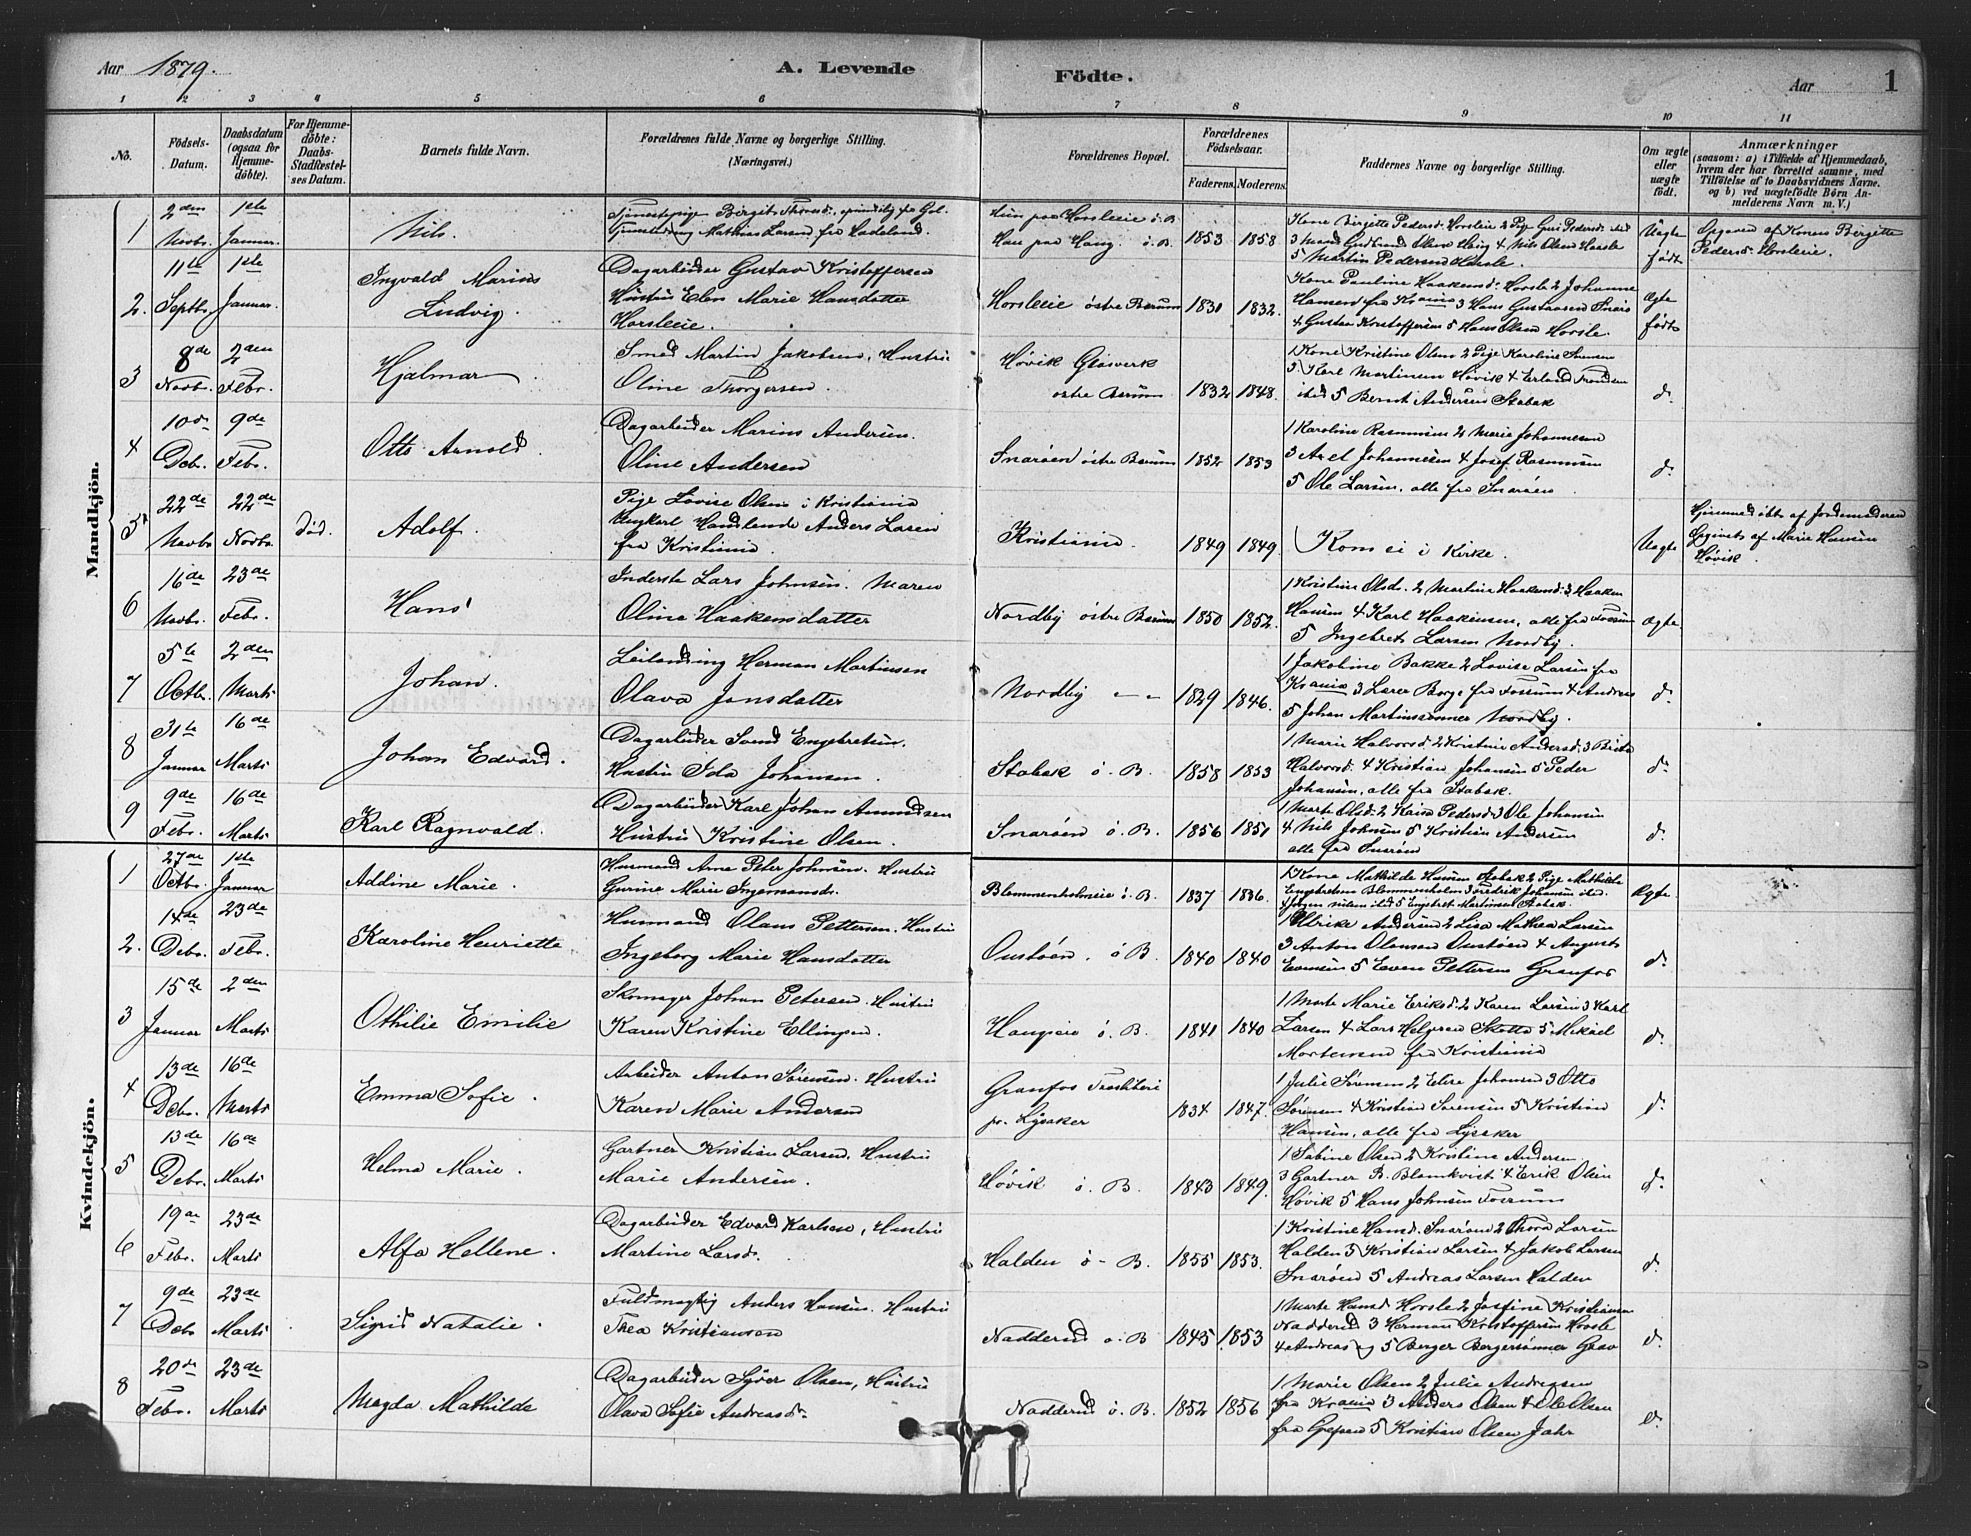 Aar 1879.
A. Levende
Födte.
Aar
1
1 2 3 4 5 6 7 8 9 10 11
No.
Födsels-Datum.
Daabsdatum (ogsaa for Hjemme-döbte).
For Hjemme-döbte: Daabs-Stadfæstel-ses Datum.
Barnets fulde Navn.
Forældrenes fulde Navne og borgerlige Stilling. (Næringsvei.)
Forældrenes Bopæl.
Forældrenes Födselsaar.
Faderens. Moderens.
Faddernes Navne og borgerlige Stilling.
Om ægte eller uægte födt.
Anmærkninger
(saasom: a) i Tilfælde af Hjemmedaab,
hvem der har forrettet samme, med
Tilföielse af to Daabsvidners Navne.
og b) ved uægtefödte Börn An-
melderens Navn m. V.)
Mandkjön.
1 2den Novbr. 1ste Januar. Nils.
Tjenestepige Birgit
Mathias Larsen fra Hadeland.
Hun paa Horsleie ö. B.
Han paa Haug. ö. B. 1853 1858
Kone Birgitte Pedersd. Horsleie 2 Pige
3 Mand Gudbrand Olsen Haug 4 Nils Olsen Horsle
5 Martin Pedersen Horsle.
Uægte født
Opgaven af Konen Birgitte
Pedersd. Horsleie.
2. 11te Septbr. 1ste Januar. Ingvald Marius
Ludvig.
Dagarbeider Gustav Kristoffersen
Hustru Elen Marie Hansdatter
Horsleie.
Horsleie östre Bærum 1830 1832.
Kone Pauline Haakensd. Horsle 2 Johanne
Hansen fra Krania 3 Hans Gustavsen Snarö
4 Gustav Kristoffersen 5 Hans Olsen Horsle.
Ægte født
3 8de Novbr. 2den Febr. Hjalmar
Smed Martin Jakobsen, Hustru
Oline Thorgersen.
Høvik Glasverk
östre Bærum 1832 1848.
1 Kone Kristine Olsen 2 Pige Karoline
3 Karl Martinsen Høvik 4 Erland Trondsen
ibid 5 Bernt Andersen Stabak
d.
4 10de Debr. 9de Febr. Otto Arnold.
Dagarbeider Marius Andersen.
Oline Andersen
Snarøen östre Bærum 1852 1853
1 Karoline Rasmusen 2 Marie Johannesen
3 Axel Johannesen 4 Josef Rasmusen
5 Ole Larsen, alle fra Snarøen.
d.
5 22de Novbr. 22de Novbr. død. Adolf.
Pige Lovise Olsen i Kristiania
Ungkarl Handlende Anders Larsen
fra Kristiania.
Kristiania. 1849 1849
Kom ei i Kirke.
Uægte
Hjemmedøbt af Jordemoderen
Opgivets af Marie Hansen
Høvik.
6 16de Novbr. 23de Febr. Hans
Inderste Lars Johnsen. Maren
Oline Haakensdatter
Nordby östre Bærum 1850 1852.
1 Kristine Olsd. 2 Martine Haakensd. 3 Haaken
Hansen 4 Karl Haakensen, alle fra Fossum
5 Ingebret Larsen Nordby.
Ægte
7 5te Octbr. 2den Marts Johan.
Leilending Herman Martinsen
Olava Jonsdatter
Nordby – – 1829 1846.
1 Jakobine Bakke 2 Lovise Larsen fra
Krania 3 Lærer Borge fra Fossum 4 Andreas
5 Johan Martinssønner Nordby.
d.
8 31te Januar 16de Marts Johan Edvard.
Dagarbeider Svend Engebretsen.
Hustru Ida Johansen.
Stabak ö. B. 1858 1853
1 Marie Halvorsd. 2 Kristine Andersd. 3 Berte
Halvorsd. 4 Kristian Johansen 5 Peder
Johansen, alle fra Stabak.
d.
9 9de Febr. 16de Marts Karl Ragnvald.
Dagarbeider Karl Johan Amundsen
Hustru Kristine Olsen.
Snarøen ö. B. 1856 1851
1 Marte Olsd. 2 Kaisa Pedersd. 3 Ole Johansen
4 Nils Johnsen 5 Kristian Andersen
alle fra Snarøen
d.
Kvindekjön.
1 27de Octbr. 1ste Januar Addine Marie.
Husmand Arne Peter Johnsen. Hustru
Gurine Marie Ingemansd.
Blommenholmeie ö. B. 1837 1836.
1 Kone Mathilde Hansen Stabak 2 Pige Mathilde
Engebretsen Blommenholm 3 Fredrik Johansen ibid.
5 Engebret Martinsen Stabak.
Ægte
2. 14de Debr. 23de Febr. Karoline Henriette
Husmand Olaus Pettersen. Hustru
Ingeborg Marie Hansdatter
Oustøen. ö B. 1840 1840
1 Ulrike Andersen 2 Lisa Mathea Larsen
3 Anton Olausen Oustøen 4 August
Evensen 5 Even Pettersen Granfos
d.
3 15de Januar 2den Marts Othilie Emilie
Skomager Johan Petersen. Hustru
Karen Kristine Ellingsen.
Haugeie ö. B. 1841 1840
1 Marte Marie Eriksd. 2 Karen Larsen 3 Karl
Larsen 4 Lars Helgesen Skotta 5 Mikael
Mortensen fra Kristiania
d.
4 13de Debr. 16de Marts Emma Sofie.
Arbeider Anton Sørensen. Hustru
Karen Marie Andersen
Granfos Træsliberi
pr. Lysaker 1834 1847.
1 Julie Sørensen 2 Elise Johansen 3 Otto
Sørensen 4 Kristian Sørensen 5 Kristian
Hansen, alle fra Lysaker
d.
5 13de Debr. 16de Marts Helma Marie.
Gartner Kristian Larsen. Hustru
Marie Andersen.
Høvik ö. B. 1843 1849.
1 Sabine Olsen 2 Kristine Andersen
3 Gartner B. Blomkvist 4 Erik Olsen
Høvik 5 Hans Johnsen Fossum
d.
6 19de Febr. 23de Marts Alfa Hellene.
Dagarbeider Edvard Karlsen, Hustru
Martine Larsd.
Halden ö. B. 1855 1853.
1 Kristine Hansd. Snarøen 2 Thora Larsen
Halden 3 Kristian Larsen 4 Jakob Larsen
Snarøen 5 Andreas Larsen Halden
d.
7 9de Debr 23de Marts Sigrid Natalie.
Fuldmægtig Anders Hansen. Hustru
Thea Kristiansen
Nadderud ö. B 1845 1853
1 Marte Hansd Horsle 2 Josfine Kristiansen
Nadderud 3 Herman Kristoffersen Horsle
4 Andreas og 5 Berger Bergersønner Grav
d.
8 20de Febr. 23de Marts Magda Mathilde
Dagarbeider Syver Olsen, Hustru
Olava Sofie Andreasdr.
Nadderud ö. B. 1852 1856
1 Marie Olsen 2 Julie Andresen
fra Krania 3 Anders Olsen 4 Ole Olsen
fra 5 Kristian Olsen Jahr
d.